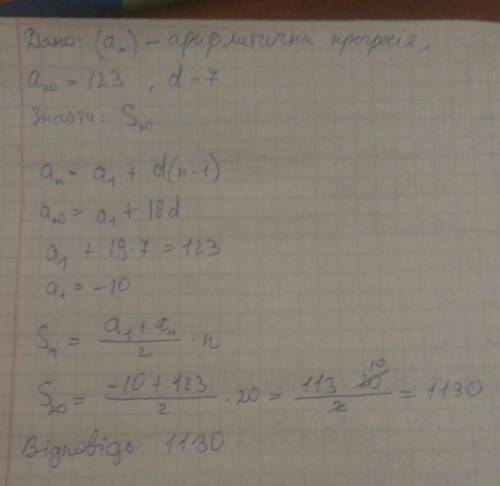 Дано: (aₙ) – арифметична прогресія,
a₂₀ = 123 , d = 7
Знайти: S₂₀
aₙ = a₁ + d(n-1)
a₂₀ = a₁ + 18d
a₁ + 19·7 = 123
a₁ = -10
Sₙ = (a₁ + aₙ)/2 · n
S₂₀ = (-10 + 123)/2 · 20 = (113 · 20)/2 = 1130
10
Відповідь: 1130